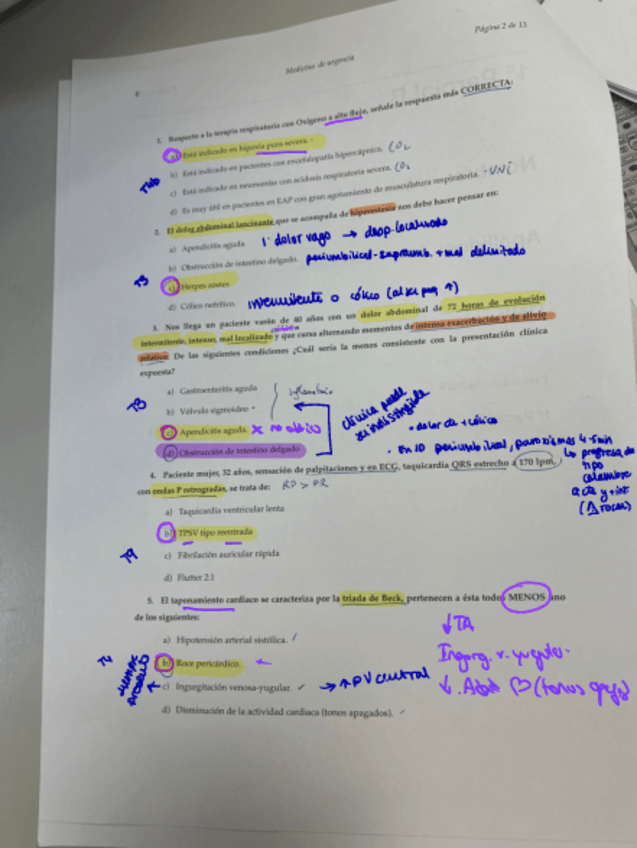 Página 2 de 13
Medicina de urgencia
1. Respecto a la terapia respiratoria con Oxígeno a alto flujo, señale la respuesta más CORRECTA:
a) Está indicado en hipoxia pura severa.
b) Está indicado en pacientes con encefalopatía hipercápnica. CO2
c) Está indicado en neumonías con acidosis respiratoria severa. CO2
d) Es muy útil en pacientes en EAP con gran agotamiento de musculatura respiratoria. - VNI
2. El dolor abdominal lancinante que se acompaña de hiperestesia nos debe hacer pensar en:
a) Apendicitis aguda. 1º dolor vago → desp. localizado
b) Obstrucción de intestino delgado. periumbilical - supraumb. + mal delimitado
T3
c) Herpes zoster
d) Cólico nefrítico. intermitente o cólico
3. Nos llega un paciente varón de 40 años con un dolor abdominal de 72 horas de evolución
intermitente, intenso, mal localizado y que cursa alternando momentos de intensa exacerbación y de alivio
relativo. De las siguientes condiciones ¿Cuál sería la menos consistente con la presentación clínica
expuesta?
a) Gastroenteritis aguda
T3
b) Vólvulo sigmoideo
c) Apendicitis aguda x no cólico
d) Obstrucción de intestino delgado
clínica puede
ser indistinguible
• dolor de + cólico
• En ID periumbilical, paroxismos 4-5min
↳ progresa de
tipo
4. Paciente mujer, 32 años, sensación de palpitaciones y en ECG, taquicardia QRS estrecho a 170 lpm,
con ondas P retrogradas, se trata de: RP > PR
a) Taquicardia ventricular lenta
b) TPSV tipo reentrada
T9
c) Fibrilación auricular rápida
d) Flutter 2:1
5. El taponamiento cardiaco se caracteriza por la triada de Beck, pertenecen a ésta todos MENOS uno
de los siguientes:
a) Hipotensión arterial sistólica.
b) Roce pericárdico.
c) Ingurgitación venosa-yugular. → ↑ PV central
d) Disminución de la actividad cardiaca (tonos apagados).
↓ TA
Ingurg. v. yugular.